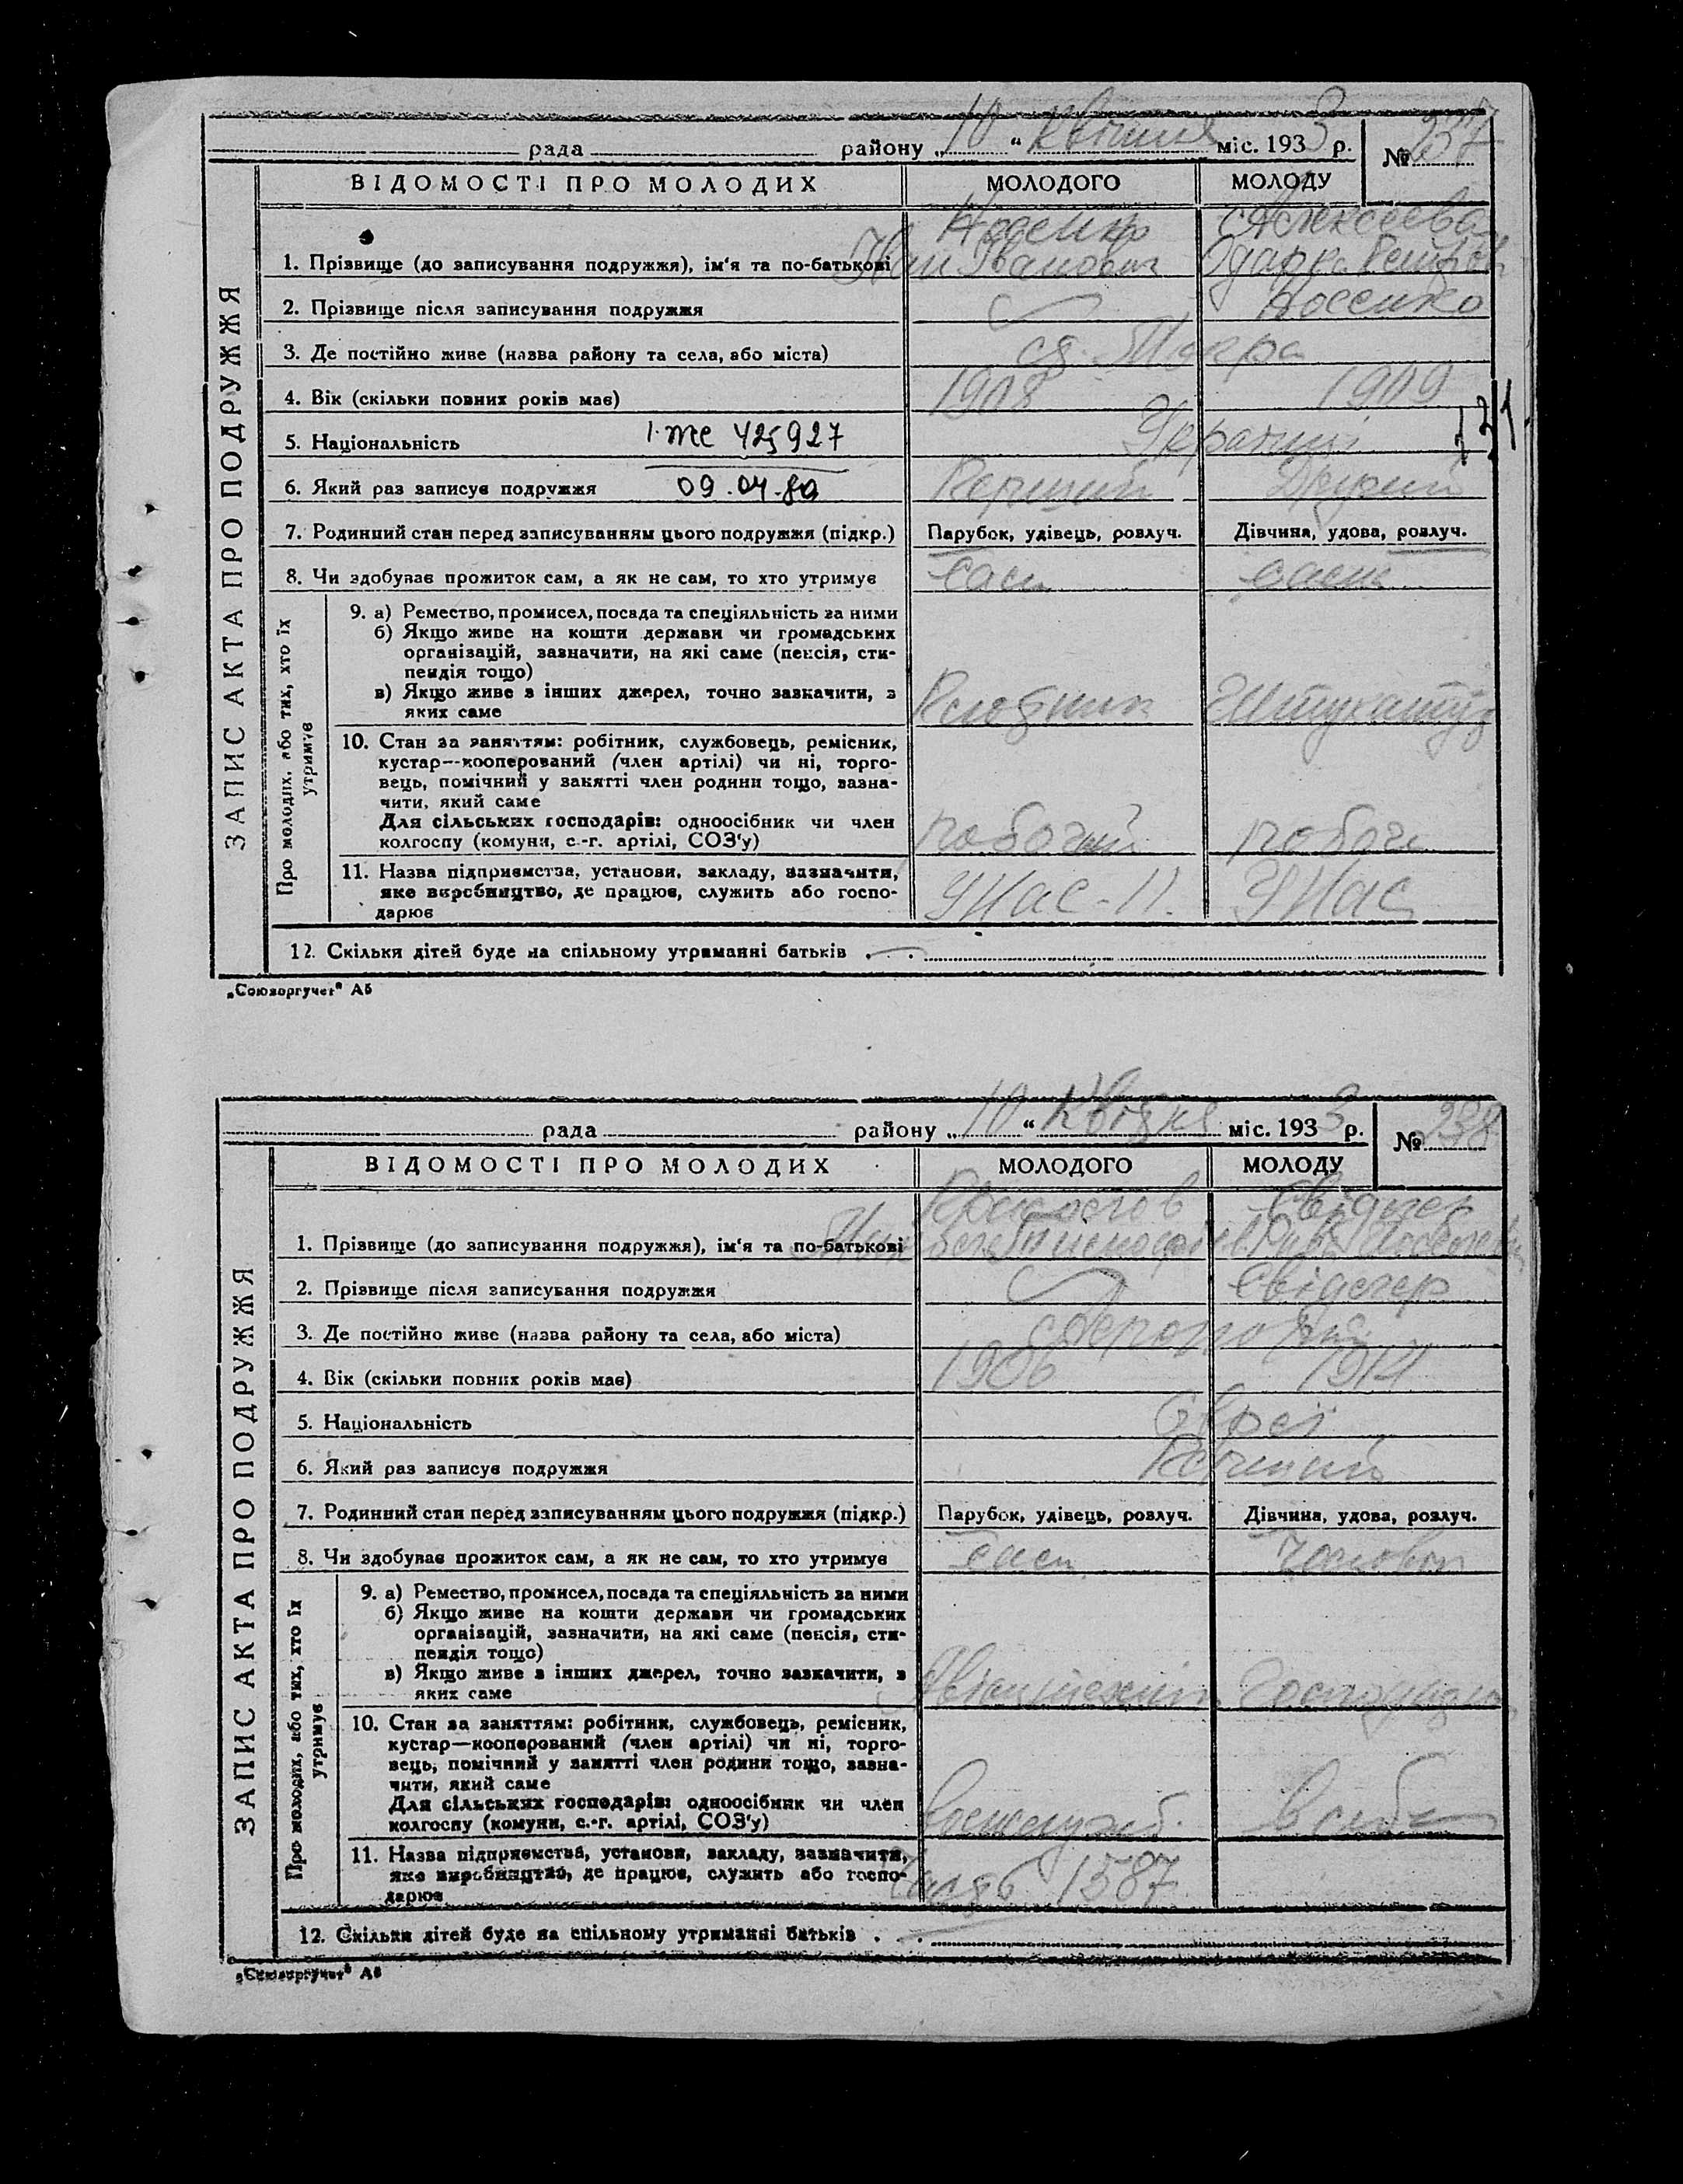 рада району „ 10 “ квітня міс. 1933 р. № 237
ЗАПИС АКТА ПРО ПОДРУЖЖЯ
ВІДОМОСТІ ПРО МОЛОДИХ МОЛОДОГО МОЛОДУ
Носенко Алексеева
1. Прізвище (до записування подружжя), ім'я та по-батькові Іван Іванович Одарка Петров
2. Прізвище після записування подружжя Носенко
3. Де постійно живе (назва району та села, або міста)
4. Вік (скільки повних років має) 1908 1909
5. Національність 425927 Українці
6. Який раз записує подружжя 09.04.80 Перший Другий
7. Родинний стан перед записуванням цього подружжя (підкр.) Парубок, удівець, розлуч. Дівчина, удова, розлуч.
8. Чи здобуває прожиток сам, а як не сам, то хто утримує сам сама
Про молодих, або тих, хто їх утримує
9. а) Ремество, промисел, посада та спеціяльність за ними
б) Якщо живе на кошти держави чи громадських
організацій, зазначити, на які саме (пенсія, сти-
пендія тощо)
в) Якщо живе з інших джерел, точно зазначити, з
яких саме Штукатур
10. Стан за заняттям: робітник, службовець, ремісник,
кустар—кооперований (член артілі) чи ні, торго-
вець, помічний у занятті член родини тощо, зазна-
чити, який саме
Для сільських господарів: одноосібник чи член
колгоспу (комуни, с.-г. артілі, СОЗ'у) робочий робоч
11. Назва підприємства, установи, закладу, зазначити,
яке виробництво, де працює, служить або госпо-
дарює
12. Скільки дітей буде на спільному утриманні батьків
„Союзоргучет" А5
рада району „ 10 “ квітня міс. 1933 р. № 238
ЗАПИС АКТА ПРО ПОДРУЖЖЯ
ВІДОМОСТІ ПРО МОЛОДИХ МОЛОДОГО МОЛОДУ
1. Прізвище (до записування подружжя), ім'я та по-батькові
2. Прізвище після записування подружжя Свідлер
3. Де постійно живе (назва району та села, або міста)
4. Вік (скільки повних років має) 1906 1914
5. Національність Євреї
6. Який раз записує подружжя Перший
7. Родинний стан перед записуванням цього подружжя (підкр.) Парубок, удівець, розлуч. Дівчина, удова, розлуч.
8. Чи здобуває прожиток сам, а як не сам, то хто утримує сам чоловік
Про молодих, або тих, хто їх утримує
9. а) Ремество, промисел, посада та спеціяльність за ними
б) Якщо живе на кошти держави чи громадських
організацій, зазначити, на які саме (пенсія, сти-
пендія тощо)
в) Якщо живе з інших джерел, точно зазначити, з
яких саме Авіатехнік
10. Стан за заняттям: робітник, службовець, ремісник,
кустар—кооперований (член артілі) чи ні, торго-
вець, помічний у занятті член родини тощо, зазна-
чити, який саме
Для сільських господарів: одноосібник чи член
колгоспу (комуни, с.-г. артілі, СОЗ'у)
11. Назва підприємства, установи, закладу, зазначити,
яке виробництво, де працює, служить або госпо- 1587
дарює
12. Скільки дітей буде на спільному утриманні батьків
„Союзоргучет" А5